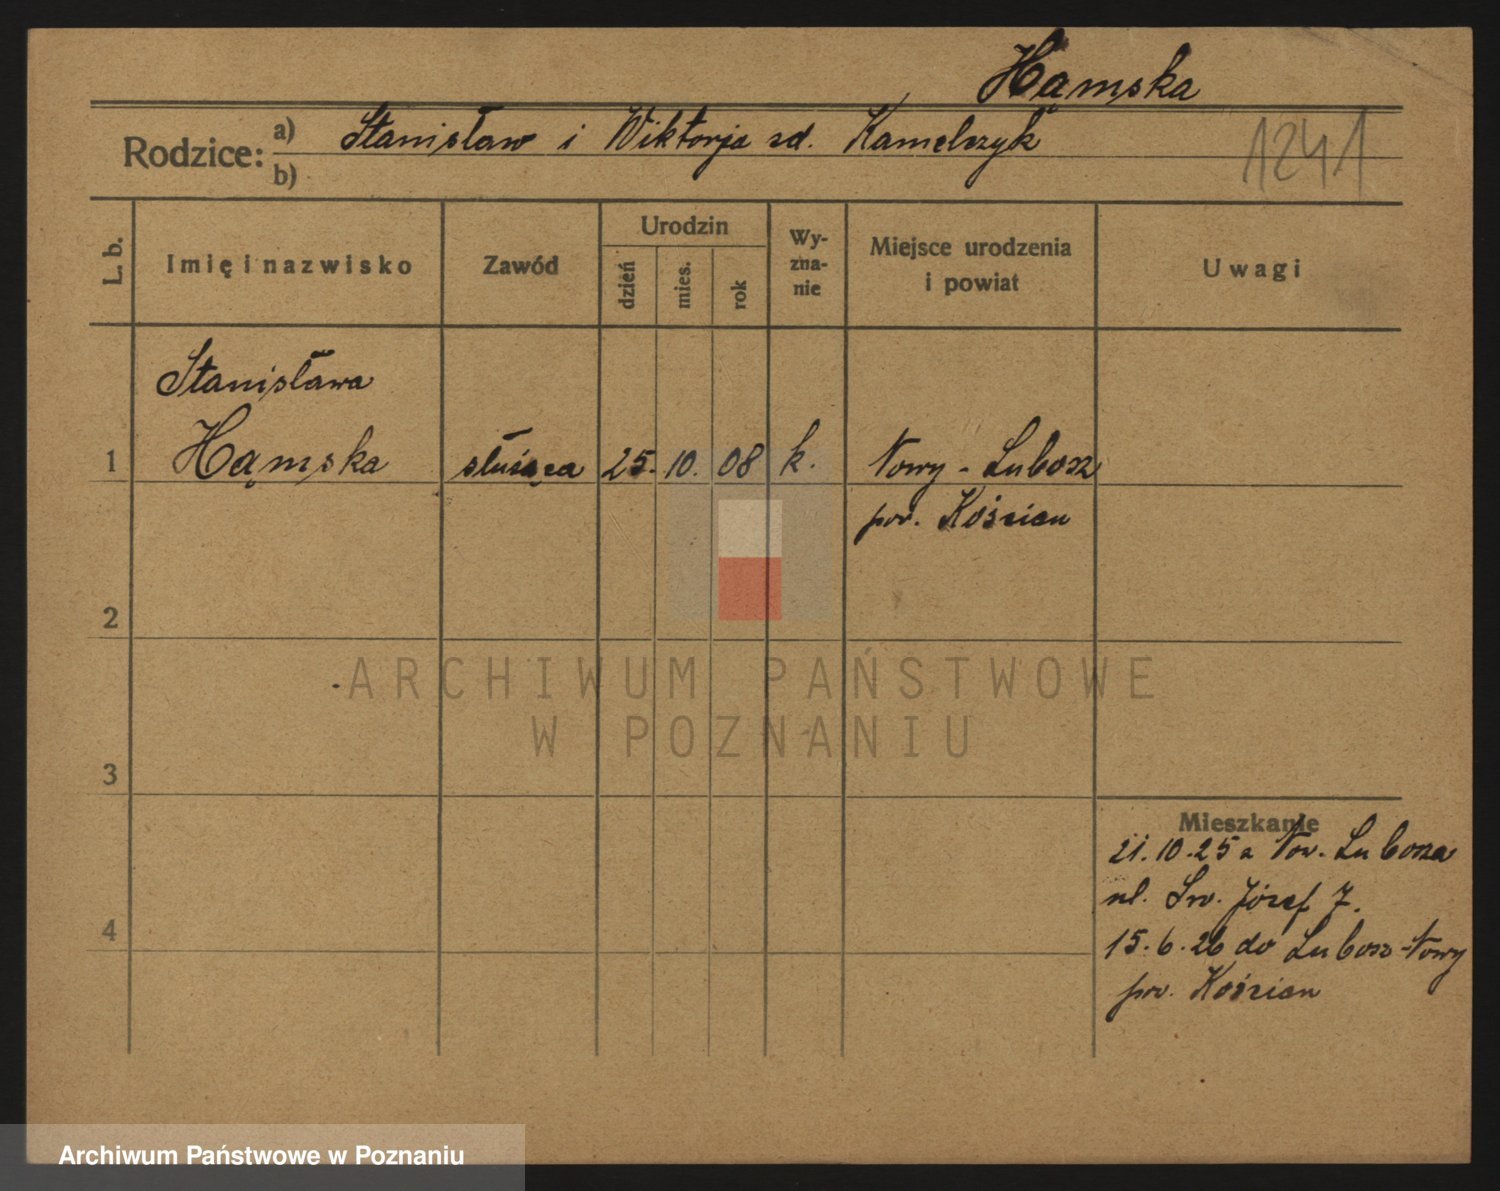 Hąmska
Rodzice: a) Stanisław i Wiktorja zd. Kamelczyk
b)
1241
L. b.
Imię i nazwisko
Zawód
Urodzin
dzień
mies.
rok
Wy-
zna-
nie
Miejsce urodzenia
i powiat
Uwagi
Stanisława
1 Hąmska służąca 25. 10. 08 k. Nowy - Lubosz
pow. Kościan
2
ARCHIWUM PAŃSTWOWE
W POZNANIU
3
Mieszkanie
21.10.25 z Now. Lubosza
ul. Św. Józef 7.
4
15.6.26 do Lubosz-Nowy
pow. Kościan
Archiwum Państwowe w Poznaniu